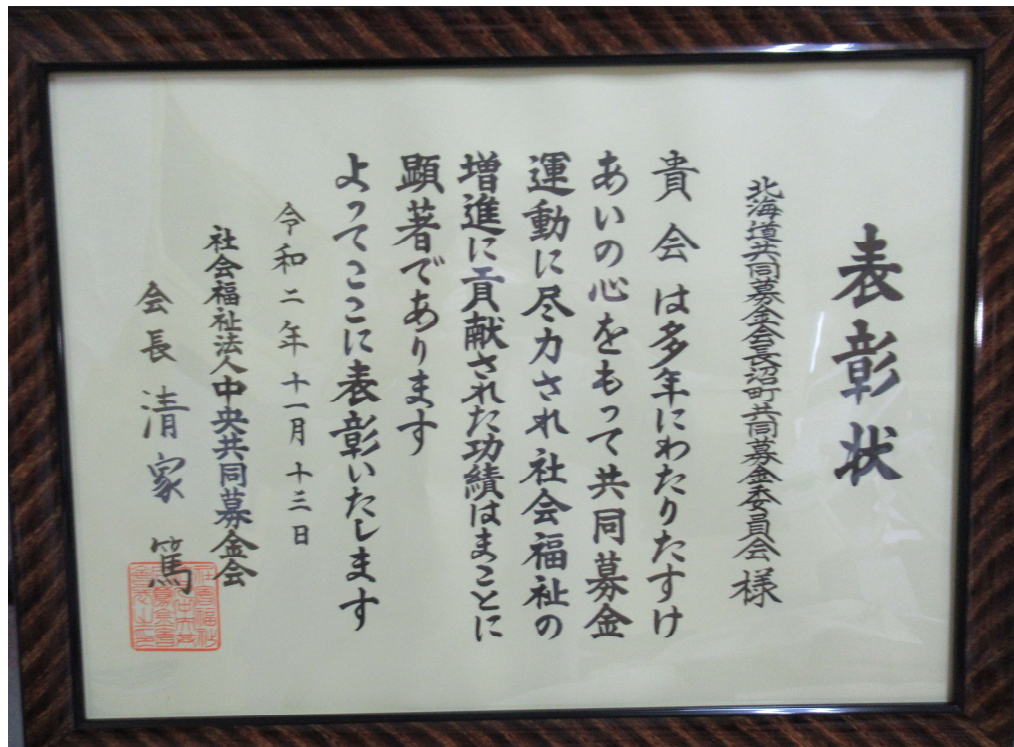 表彰状
北海道共同募金会長沼町共同募金委員会 様
貴会は多年にわたりたすけ
あいの心をもって共同募金
運動に尽力され社会福祉の
増進に貢献された功績はまことに
顕著であります
よってここに表彰いたします
令和二年十一月十三日
社会福祉法人中央共同募金会
会長 清家 篤